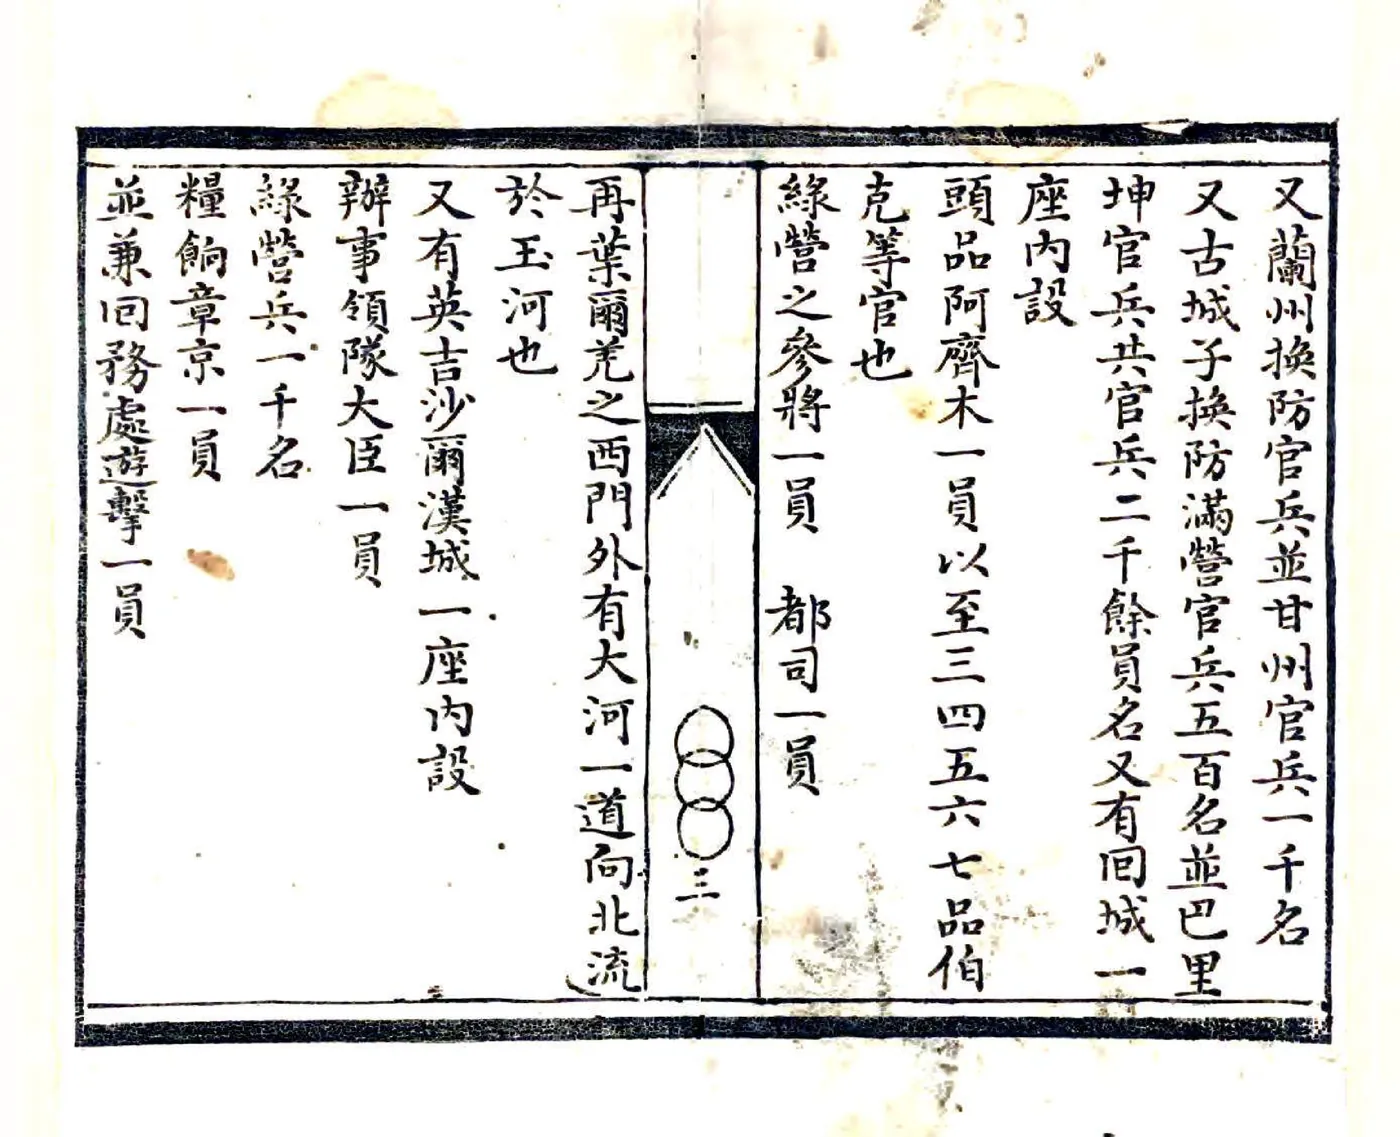 又蘭州換防官兵並甘州官兵一千名
又古城子換防滿營官兵五百名並巴里
坤官兵共官兵二千餘員名又有回城一
座內設
頭品阿齊木一員以至三四五六七品伯
克等官也
綠營之參將一員　都司一員
三
再葉爾羌之西門外有大河一道向北流
於玉河也
又有英吉沙爾漢城一座內設
辦事領隊大臣一員
綠營兵一千名
糧餉章京一員
並兼回務處遊擊一員